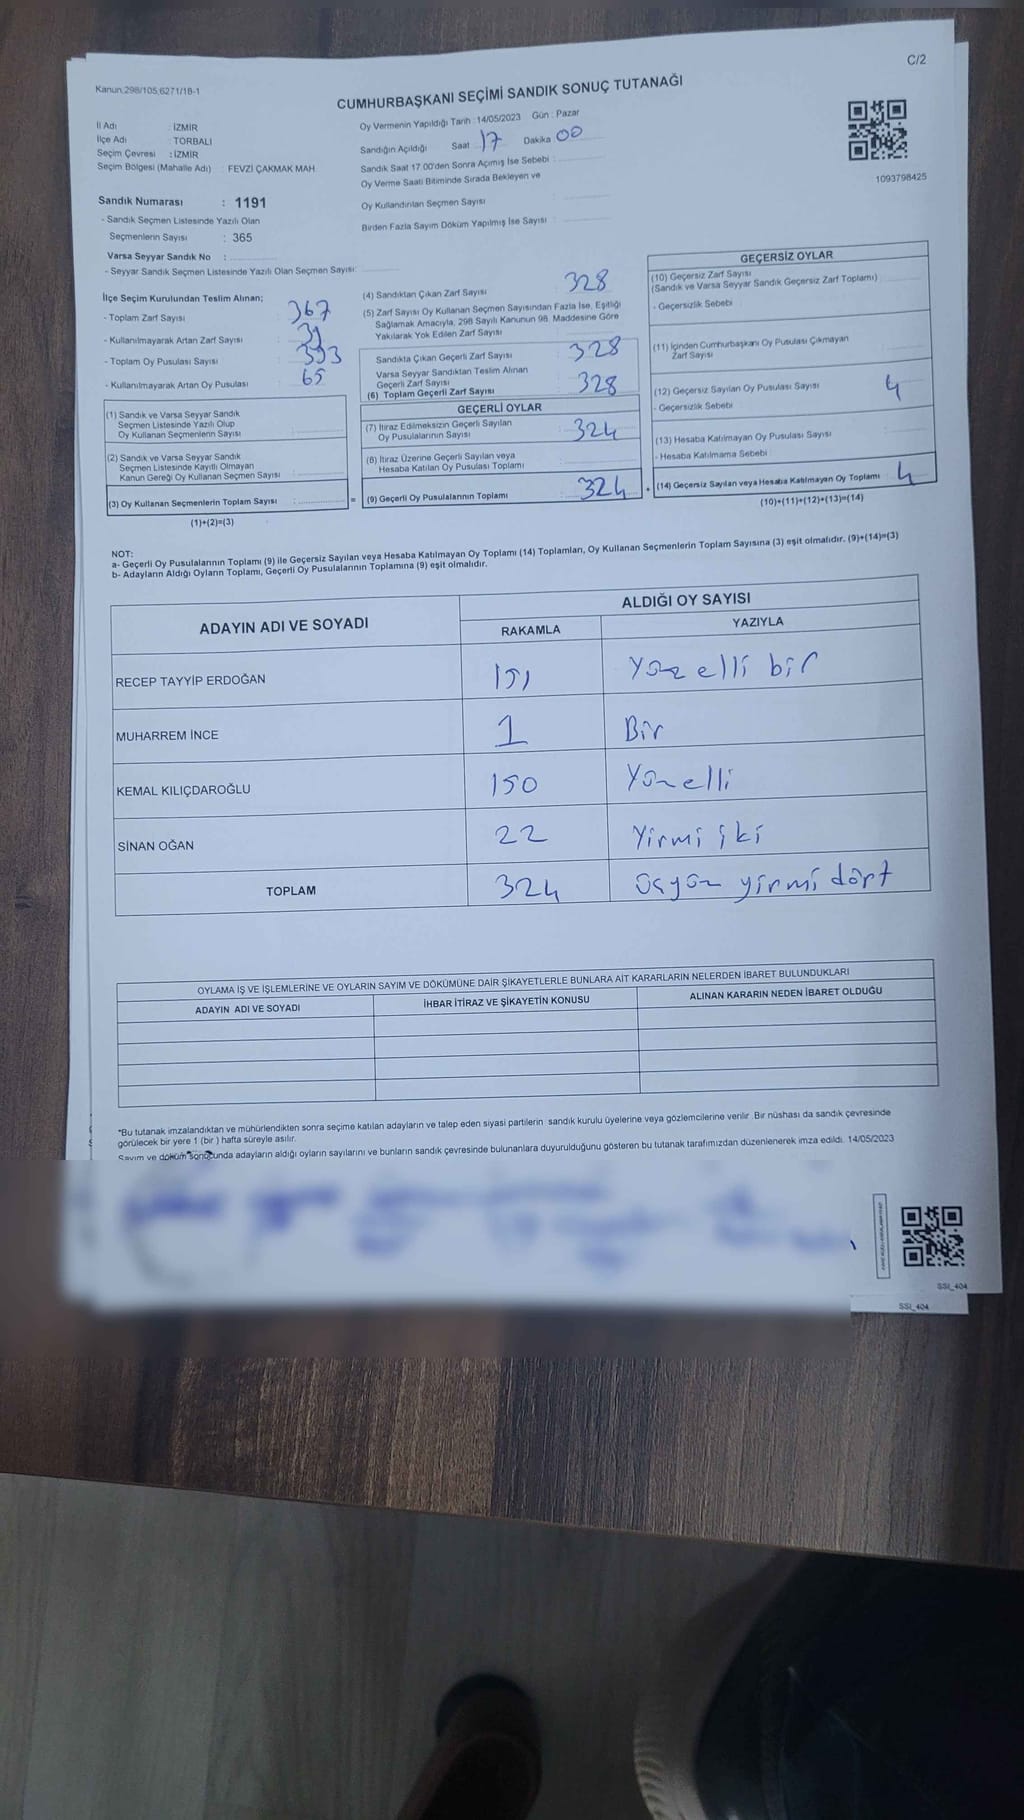 C/2
Kanun.298/105,6271/18-1
CUMHURBAŞKANI SEÇİMİ SANDIK SONUÇ TUTANAĞI
İl Adı : İZMİR
İlçe Adı : TORBALI
Seçim Çevresi : İZMİR
Seçim Bölgesi (Mahalle Adı) : FEVZİ ÇAKMAK MAH
Sandık Numarası : 1191
- Sandık Seçmen Listesinde Yazılı Olan
Seçmenlerin Sayısı : 365
Varsa Seyyar Sandık No :
- Seyyar Sandık Seçmen Listesinde Yazılı Olan Seçmen Sayısı:
Oy Vermenin Yapıldığı Tarih : 14/05/2023 Gün : Pazar
Sandığın Açıldığı Saat 17 Dakika 00
Sandık Saat 17.00'den Sonra Açımış İse Sebebi :
Oy Verme Saati Bitiminde Sırada Bekleyen ve
Oy Kullandırılan Seçmen Sayısı :
Birden Fazla Sayım Döküm Yapılmış İse Sayısı :
1093798425
İlçe Seçim Kurulundan Teslim Alınan;
- Toplam Zarf Sayısı : 367
- Kullanılmayarak Artan Zarf Sayısı :
- Toplam Oy Pusulası Sayısı : 393
- Kullanılmayarak Artan Oy Pusulası : 65
(1) Sandık ve Varsa Seyyar Sandık
Seçmen Listesinde Yazılı Olup
Oy Kullanan Seçmenlerin Sayısı
(2) Sandık ve Varsa Seyyar Sandık
Seçmen Listesinde Kayıtlı Olmayan
Kanun Gereği Oy Kullanan Seçmen Sayısı
(3) Oy Kullanan Seçmenlerin Toplam Sayısı :
(1)+(2)=(3)
(4) Sandıktan Çıkan Zarf Sayısı : 328
(5) Zarf Sayısı Oy Kullanan Seçmen Sayısından Fazla İse, Eşitliği
Sağlamak Amacıyla, 298 Sayılı Kanunun 98. Maddesine Göre
Yakılarak Yok Edilen Zarf Sayısı :
Sandıkta Çıkan Geçerli Zarf Sayısı : 328
Varsa Seyyar Sandıktan Teslim Alınan
Geçerli Zarf Sayısı
(6) Toplam Geçerli Zarf Sayısı 328
GEÇERLİ OYLAR
(7) İtiraz Edilmeksizin Geçerli Sayılan
Oy Pusulalarının Sayısı : 324
(8) İtiraz Üzerine Geçerli Sayılan veya
Hesaba Katılan Oy Pusulası Toplamı
= (9) Geçerli Oy Pusulalarının Toplamı : 324
GEÇERSİZ OYLAR
(10) Geçersiz Zarf Sayısı
(Sandık ve Varsa Seyyar Sandık Geçersiz Zarf Toplamı)
- Geçersizlik Sebebi
(11) İçinden Cumhurbaşkanı Oy Pusulası Çıkmayan
Zarf Sayısı
(12) Geçersiz Sayılan Oy Pusulası Sayısı 4
- Geçersizlik Sebebi
(13) Hesaba Katılmayan Oy Pusulası Sayısı
- Hesaba Katılmama Sebebi :
+ (14) Geçersiz Sayılan veya Hesaba Katılmayan Oy Toplamı : 4
(10)+(11)+(12)+(13)=(14)
NOT:
a- Geçerli Oy Pusulalarının Toplamı (9) ile Geçersiz Sayılan veya Hesaba Katılmayan Oy Toplamı (14) Toplamları, Oy Kullanan Seçmenlerin Toplam Sayısına (3) eşit olmalıdır. (9)+(14)=(3)
b- Adayların Aldığı Oyların Toplamı, Geçerli Oy Pusulalarının Toplamına (9) eşit olmalıdır.
ADAYIN ADI VE SOYADI ALDIĞI OY SAYISI
RAKAMLA YAZIYLA
RECEP TAYYİP ERDOĞAN 151 Yüz elli bir
MUHARREM İNCE 1 Bir
KEMAL KILIÇDAROĞLU 150 Yüzelli
SİNAN OĞAN 22 Yirmi iki
TOPLAM 324 üçyüz yirmi dört
OYLAMA İŞ VE İŞLEMLERİNE VE OYLARIN SAYIM VE DÖKÜMÜNE DAİR ŞİKAYETLERLE BUNLARA AİT KARARLARIN NELERDEN İBARET BULUNDUKLARI
ADAYIN ADI VE SOYADI İHBAR İTİRAZ VE ŞİKAYETİN KONUSU ALINAN KARARIN NEDEN İBARET OLDUĞU
*Bu tutanak imzalandıktan ve mühürlendikten sonra seçime katılan adayların ve talep eden siyasi partilerin sandık kurulu üyelerine veya gözlemcilerine verilir. Bir nüshası da sandık çevresinde
görülecek bir yere 1 (bir ) hafta süreyle asılır.
Sayım ve döküm sonucunda adayların aldığı oyların sayılarını ve bunların sandık çevresinde bulunanlara duyurulduğunu gösteren bu tutanak tarafımızdan düzenlenerek imza edildi. 14/05/2023
SSI_404
SSI_404